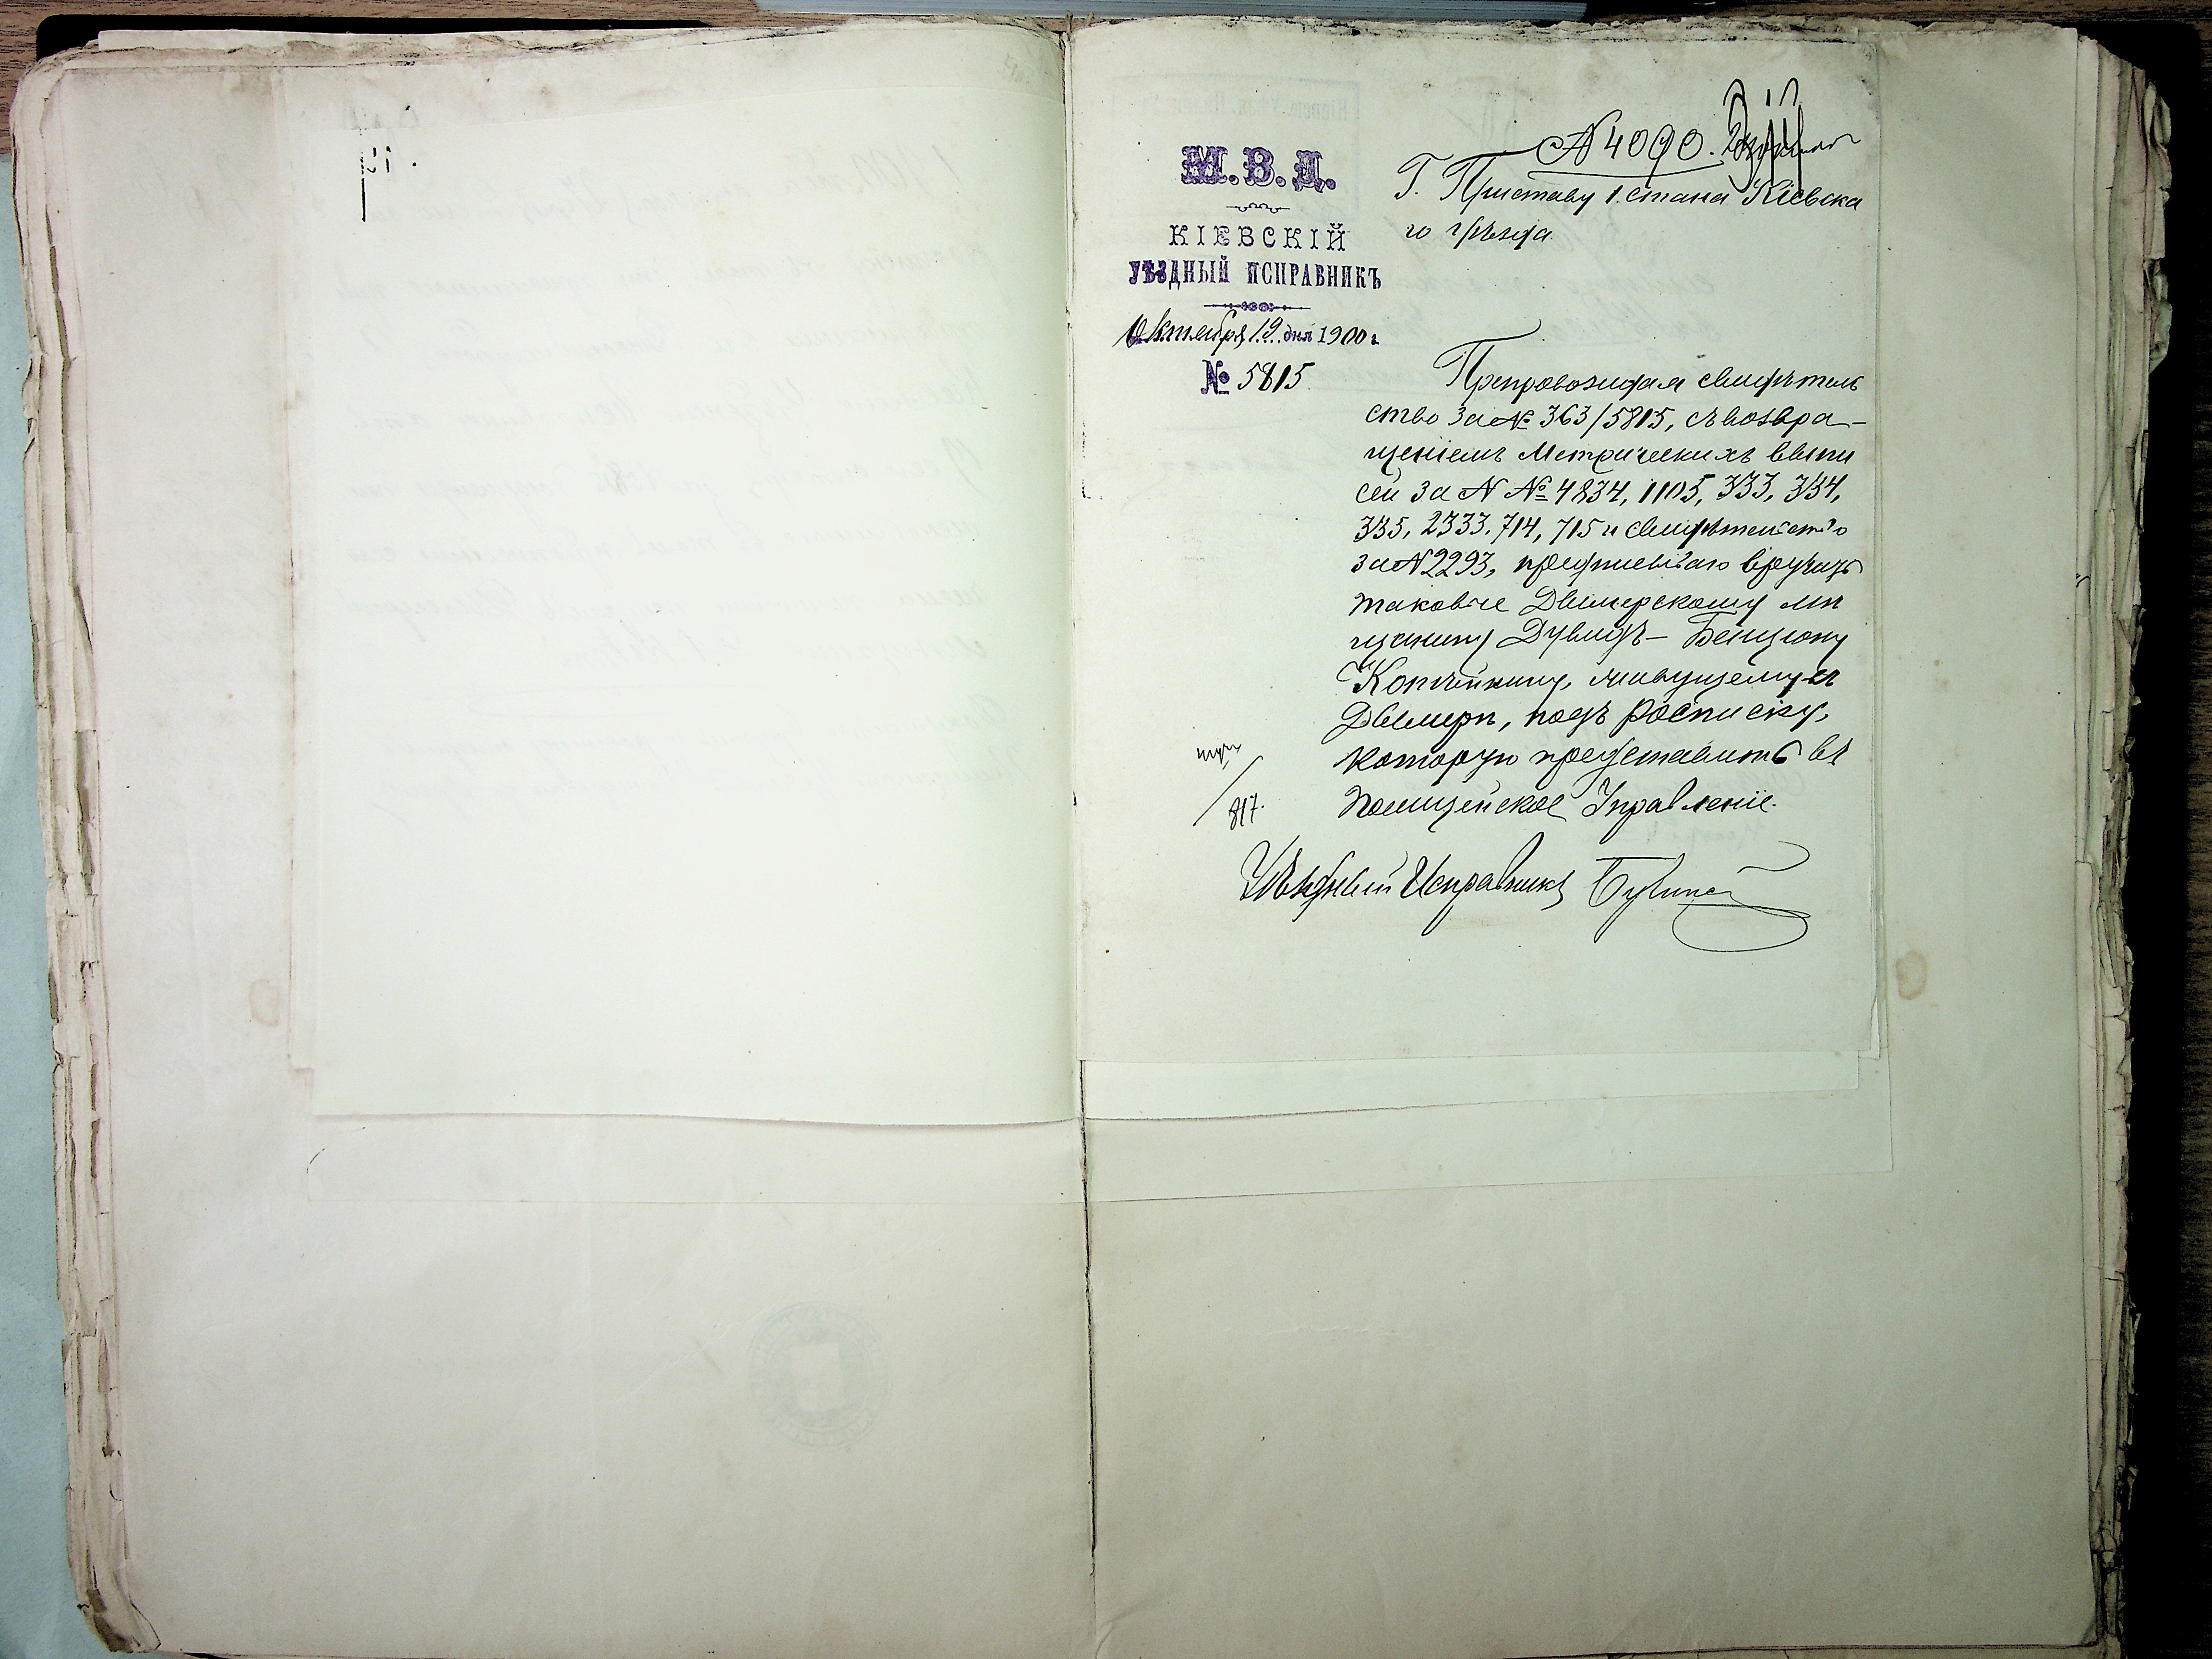 М.В.Д.
КІЕВСКІЙ
УѢЗДНЫЙ ИСПРАВНИКЪ
Октября 19 дня 1900 г.
№ 5815
№ 4090.
Г. Приставу 1 стана Кіевска
го уѣзда.
Препровождая свидѣтель
ство за № 363/5815, съ возвра-
щеніемъ Метрическихъ выпи
сей за N № 4834, 1105, 333, 334,
335, 2333, 714, 715 и свидѣтельство
за N 2293, предписываю вручить
таковые Дымерскому мѣ
щанину Дувидъ-Бенціону
Копчикину, живущему въ
Дымерѣ, подъ росписку,
которую представить въ
Полицейское Управленіе.
817.
Уѣздный Исправникъ